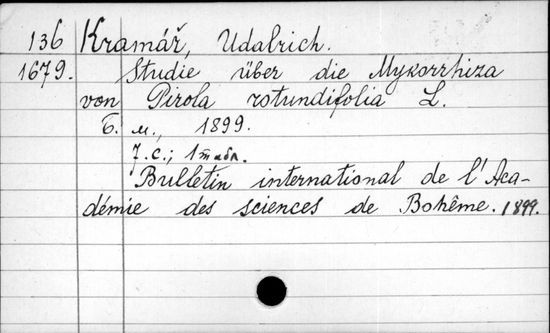 136 Kramář, Udalrich.
1679. Studie über die Mykorrhiza
von Pirola rotundifolia L.
Б. м., 1899.
7.с.; 1 табл.
Bulletin international de l'Aca-
démie des sciences de Bohême. 1899.